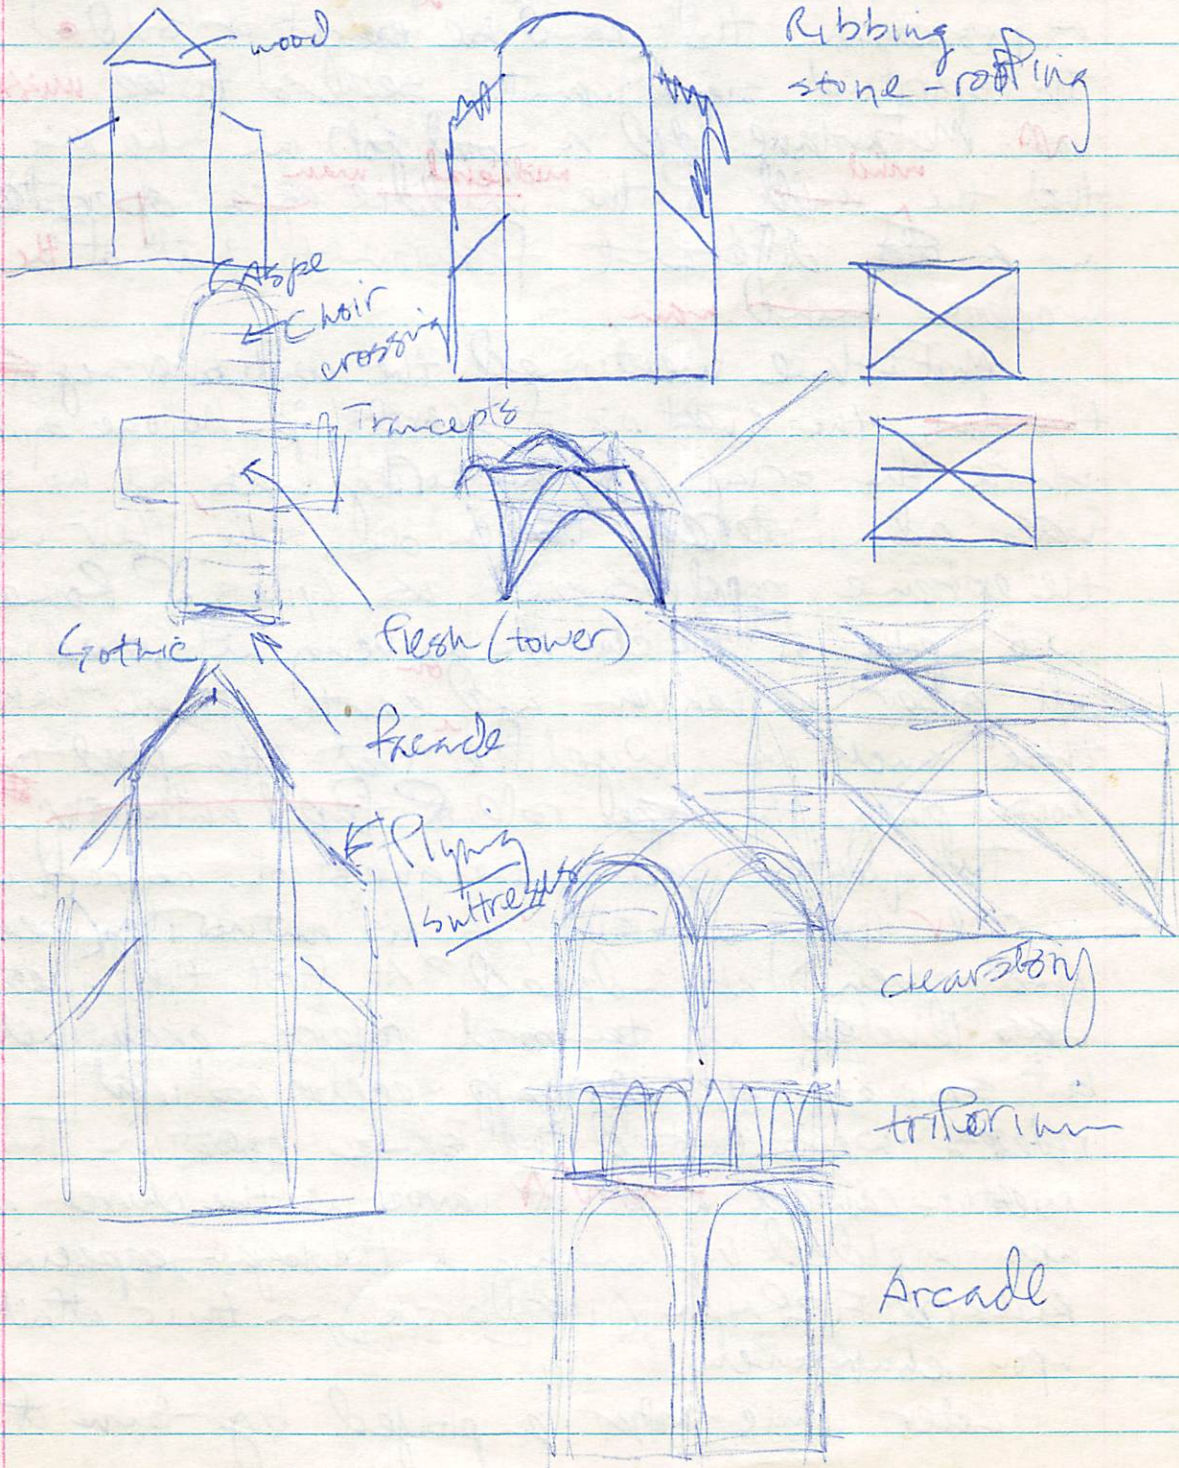 wood
Ribbing
stone-roofing
Aspe
Choir
crossing
Trancepts
Gothic
flesh (tower)
facade
Flying
buttress
clearstory
triforium
Arcade